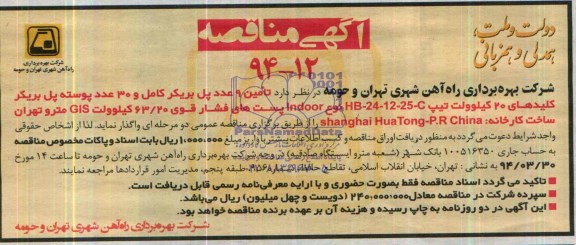 دولت و ملت، همدلی و همزبانی
آگهی مناقصه
۹۴-۱۲
شرکت بهره‌برداری
راه‌آهن شهری تهران و حومه
شرکت بهره‌برداری راه‌آهن شهری تهران و حومه در نظر دارد تامین ۹ عدد پل بریکر کامل و ۳۰ عدد پوسته پل بریکر
کلیدهای ۲۰ کیلوولت تیپ HB-24-12-25-C نوع Indoor پست های فشار قوی ۶۳/۲۰ کیلوولت GIS مترو تهران
ساخت کارخانه: shanghai HuaTong-P.R China را از طریق برگزاری مناقصه عمومی دو مرحله ای واگذار نماید. لذا از اشخاص حقوقی
واجد شرایط دعوت می گردد به منظور دریافت اوراق مناقصه و کسب اطلاعات بیشتر با مبلغ ۱،۰۰۰،۰۰۰ ریال بابت اسناد و پاکات مخصوص مناقصه
به حساب جاری ۱۰۰۵۱۶۳۵۰ بانک شهر (شعبه مترو ایستگاه صادقیه) در وجه شرکت بهره برداری راه آهن شهری تهران و حومه تا ساعت ۱۴ مورخ
۹۴/۰۳/۳۰ به نشانی: تهران، خیابان انقلاب اسلامی، تقاطع حافظ، طبقه پنجم، مدیریت امور قراردادها مراجعه نمایند.
▪ تاکید می گردد اسناد مناقصه فقط بصورت حضوری و با ارایه معرفی‌نامه رسمی قابل دریافت است.
▪ سپرده شرکت در مناقصه معادل ۲۴۰،۰۰۰،۰۰۰ (دویست و چهل میلیون) ریال می‌باشد.
▪ این آگهی در دو روزنامه به چاپ رسیده و هزینه آن بر عهده برنده مناقصه خواهد بود.
شرکت بهره‌برداری راه‌آهن شهری تهران و حومه
ParsNamadData